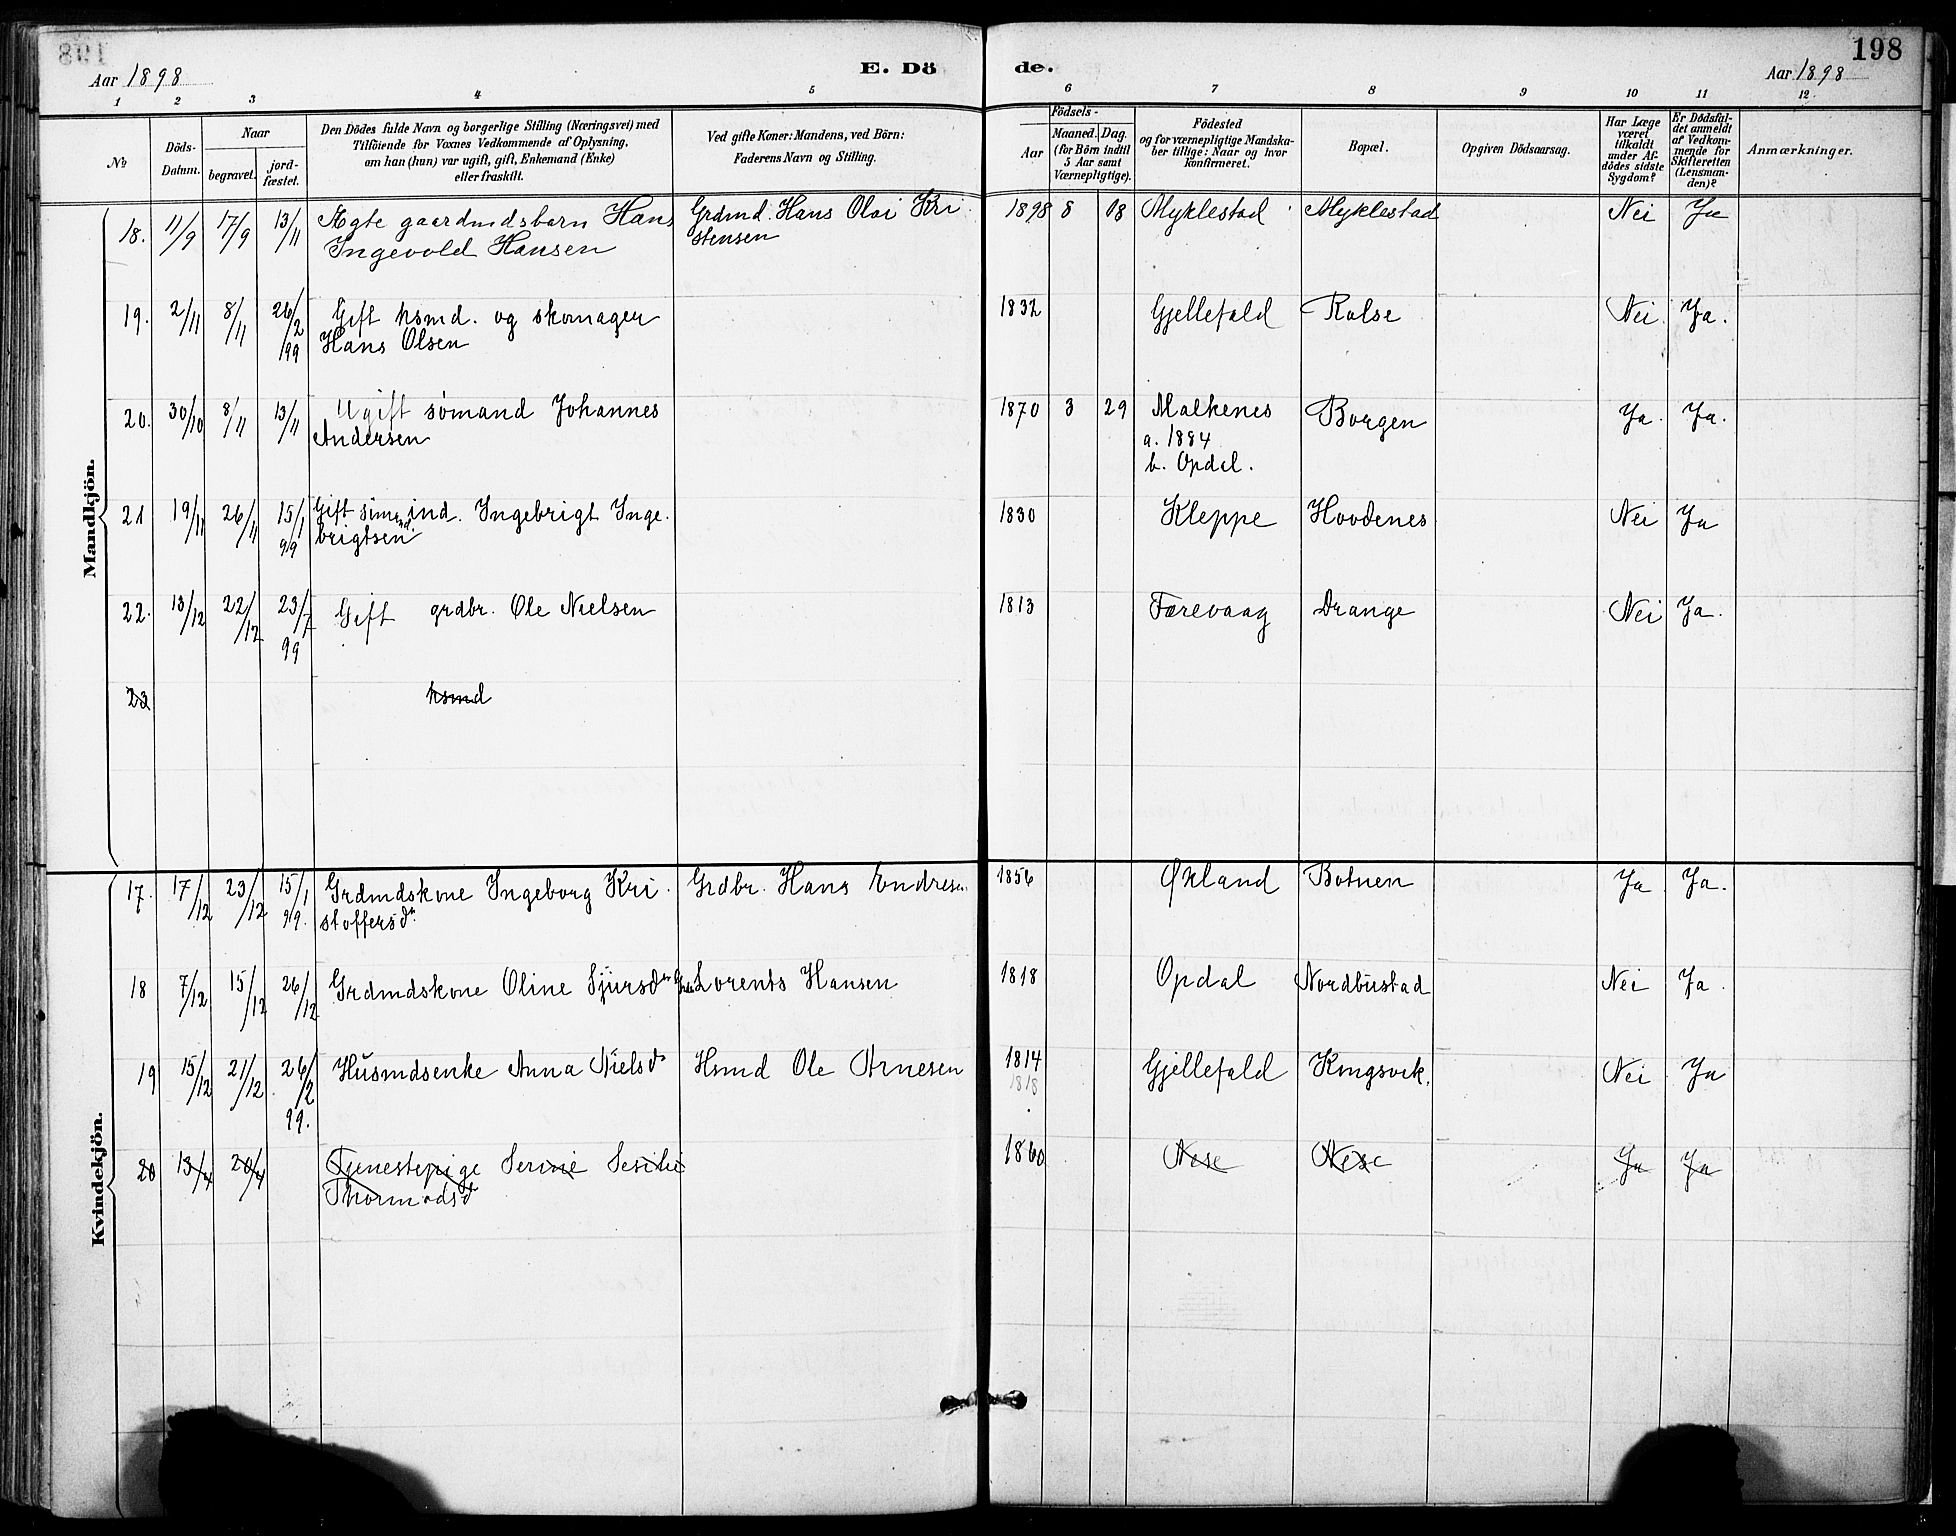 198
Aar 1898
E. Dö de.
Aar 1898
1 2 3 4 5 6 7 8 9 10 11 12.
No
Döds-Datum.
Naar
begravet.
jord-fæstet.
Den Dödes fulde Navn og borgerlige Stilling (Næringsvei) med
Tilföiende for Voxnes Vedkommende af Oplysning,
om han (hun) var ugift, gift, Enkemand (Enke)
eller fraskilt.
Ved gifte Koner: Mandens, ved Börn:
Faderens Navn og Stilling.
Födsels-
Aar
Maaned. Dag.
(for Börn indtil
5 Aar samt
Værnepligtige).
Födested
og for værnepligtige Mandska-
ber tillige: Naar og hvor
konfirmeret.
Bopæl.
Opgiven Dödsaarsag.
Har Læge
været
tilkaldt
under Af-
dödes sidste
Sygdom?
Er Dödsfal-
det anmeldt
af Vedkom-
mende for
Skifteretten
(Lensman-
den)?
Anmærkninger.
Mandkjön.
18. 11/9 17/9 13/11 Ægte gaardmdsbarn Hans Grdmd. Hans Olai Kri 1898 8 18 Myklestad Myklestad Nei Ja
Ingevold Hansen stensen
19. 2/11 8/11 26/2 99 Gift hsmd. og skomager 1832 Gjellefald Rolse Nei. Ja.
Hans Olsen
20. 30/10 8/11 13/11 Ugift sømand Johannes 1870 3 29 Malkenes Borgen Ja. Ja.
Andersen a. 1884
b. Opdal.
21 19/11 26/11 15/1 99 Gift ind. Ingebrigt Inge. 1830 Kleppe Hovdenes Nei Ja
brigtsen
22. 13/12 22/12 23/7 99 Gift grdbr. Ole Nielsen 1813 Færevaag Drange Nei Ja.
23 hsmd
Kvindekjön.
17. 17/12 23/12 15/1 99. Grdmdskone Ingeborg Kri. Grdbr. Hans Endresen 1856 Øxland Botnen Ja Ja.
stoffersdr
18 7/12 15/12 26/12 Grdmdskone Oline Sjursdr Lorents Hansen 1818 Opdal Nordbustad Nei Ja.
19 15/12 21/12 26/2 99. Husmdsenke Anna Nielsd Hsmd Ole Arnesen 1814 Gjellefald Kingsvik. Nei Ja
1818
20 13/4 20/4 Tjenestepige Serine Sesilie 1860 Nese Nese Ja Ja
Thormodsd